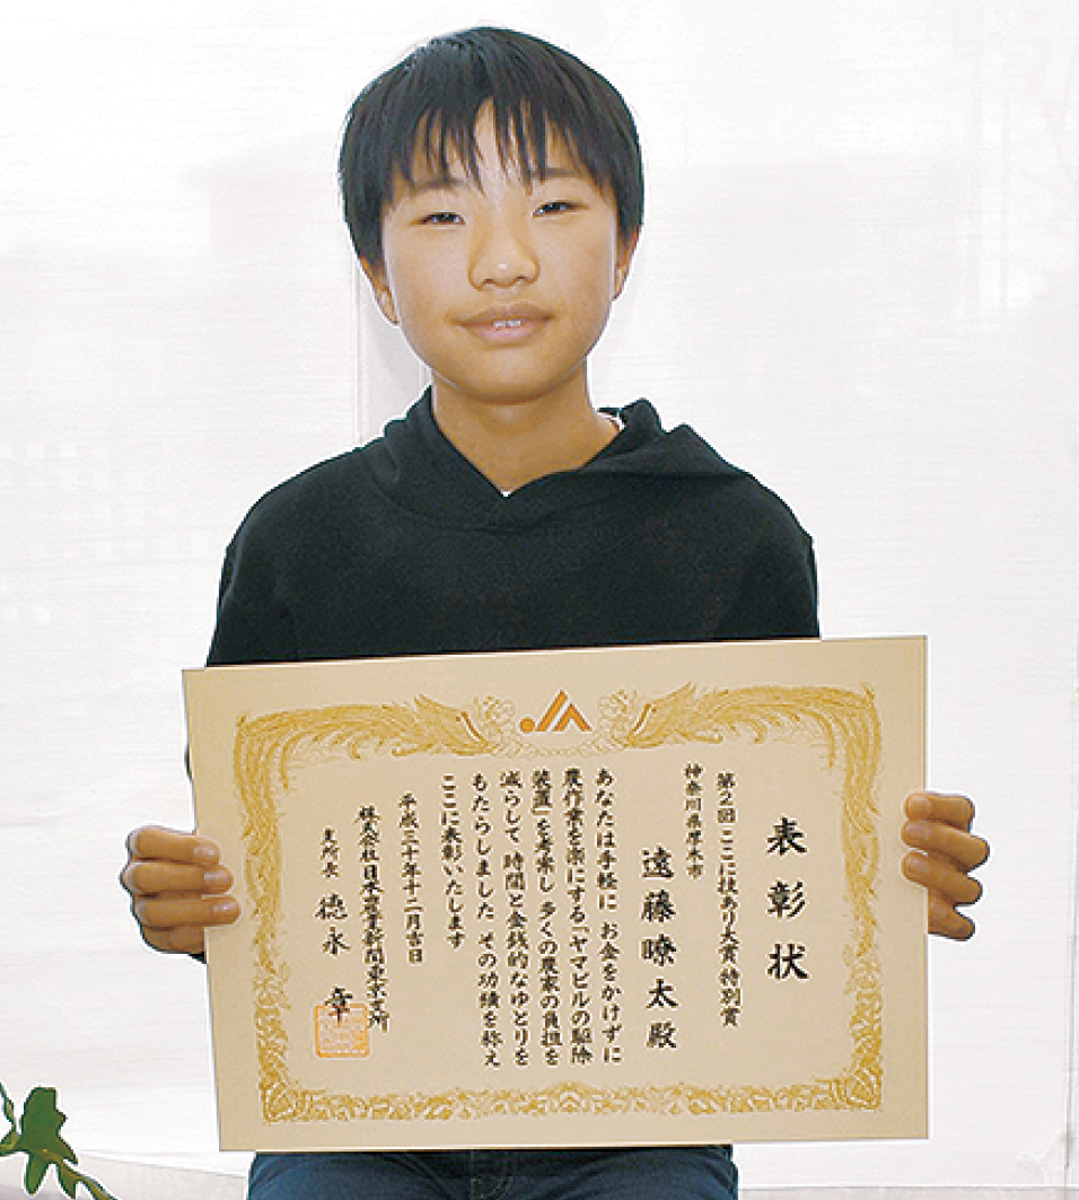 表彰状
第2回ここに技あり大賞特別賞
神奈川県厚木市
遠藤暸太殿
あなたは手軽に お金をかけずに
農作業を楽にする「ヤマビルの駆除
装置」を考案し 多くの農家の負担を
減らして 時間と金銭的なゆとりを
もたらしました その功績を称え
ここに表彰いたします
平成三十年十二月吉日
株式会社日本農業新聞東京支所
支所長 徳永 章